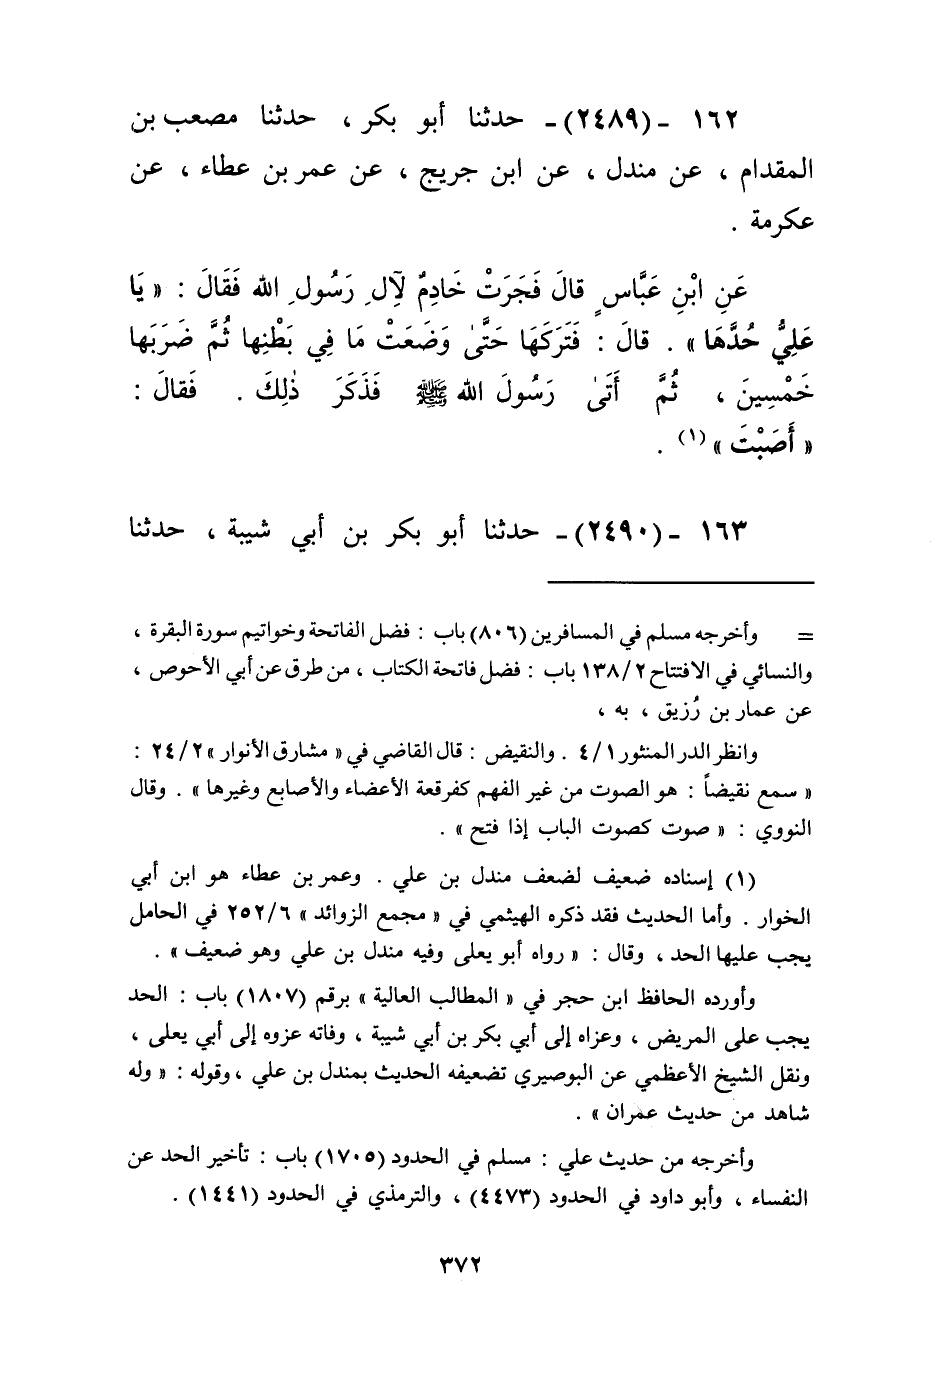 ١٦٢ ـ (٢٤٨٩) ـ حدثنا أبو بكر ، حدثنا مصعب بن
المقدام ، عن مندل ، عن ابن جريج ، عن عمر بن عطاء ، عن
عكرمة .
عَنِ ابْنِ عَبَّاسٍ قالَ فَجَرَتْ خَادِمٌ لآلِ رَسُولِ الله فَقَالَ : « يَا
عَلِيُّ حُدَّهَا » . قالَ : فَتَرَكَهَا حَتَّىٰ وَضَعَتْ مَا فِي بَطْنِها ثُمَّ ضَرَبَها
خَمْسِينَ ، ثُمَّ أَتَىٰ رَسُولَ الله ﷺ فَذَكَرَ ذٰلِكَ . فَقالَ :
« أَصَبْتَ »(١) .
١٦٣ ـ (٢٤٩٠) ـ حدثنا أبو بكر بن أبي شيبة ، حدثنا
= وأخرجه مسلم في المسافرين (٨٠٦) باب : فضل الفاتحة وخواتيم سورة البقرة ،
والنسائي في الافتتاح ١٣٨/٢ باب : فضل فاتحة الكتاب ، من طرق عن أبي الأحوص ،
عن عمار بن رُزيق ، به ،
وانظر الدر المنثور ٤/١ . والنقيض : قال القاضي في « مشارق الأنوار » ٢٤/٢ :
« سمع نقيضاً : هو الصوت من غير الفهم كفرقعة الأعضاء والأصابع وغيرها » . وقال
النووي : « صوت كصوت الباب إذا فتح » .
(١) إسناده ضعيف لضعف مندل بن علي . وعمر بن عطاء هو ابن أبي
الخوار . وأما الحديث فقد ذكره الهيثمي في « مجمع الزوائد » ٢٥٢/٦ في الحامل
يجب عليها الحد ، وقال : « رواه أبو يعلى وفيه مندل بن علي وهو ضعيف » .
وأورده الحافظ ابن حجر في « المطالب العالية » برقم (١٨٠٧) باب : الحد
يجب على المريض ، وعزاه إلى أبي بكر بن أبي شيبة ، وفاته عزوه إلى أبي يعلى ،
ونقل الشيخ الأعظمي عن البوصيري تضعيفه الحديث بمندل بن علي ، وقوله : « وله
شاهد من حديث عمران » .
وأخرجه من حديث علي : مسلم في الحدود (١٧٠٥) باب : تأخير الحد عن
النفساء ، وأبو داود في الحدود (٤٤٧٣) ، والترمذي في الحدود (١٤٤١) .
٣٧٢